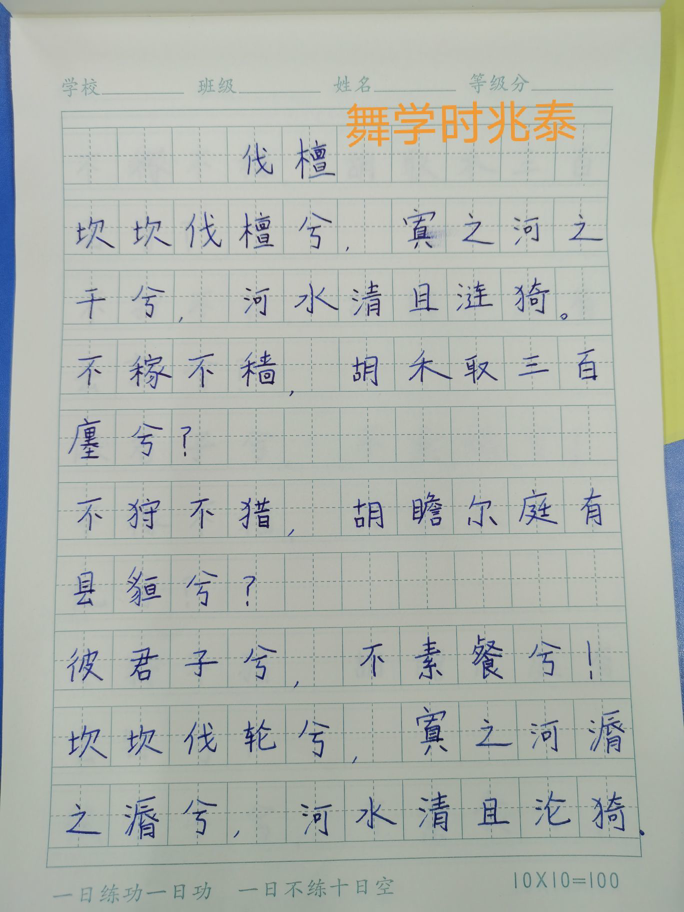 学校 班级 姓名 等级分
舞学时兆泰
伐檀
坎坎伐檀兮，寘之河之
干兮，河水清且涟猗。
不稼不穑，胡禾取三百
廛兮？
不狩不猎，胡瞻尔庭有
县貆兮？
彼君子兮，不素餐兮！
坎坎伐轮兮，寘之河漘
之漘兮，河水清且沦猗．
一日练功一日功 一日不练十日空 10X10=100